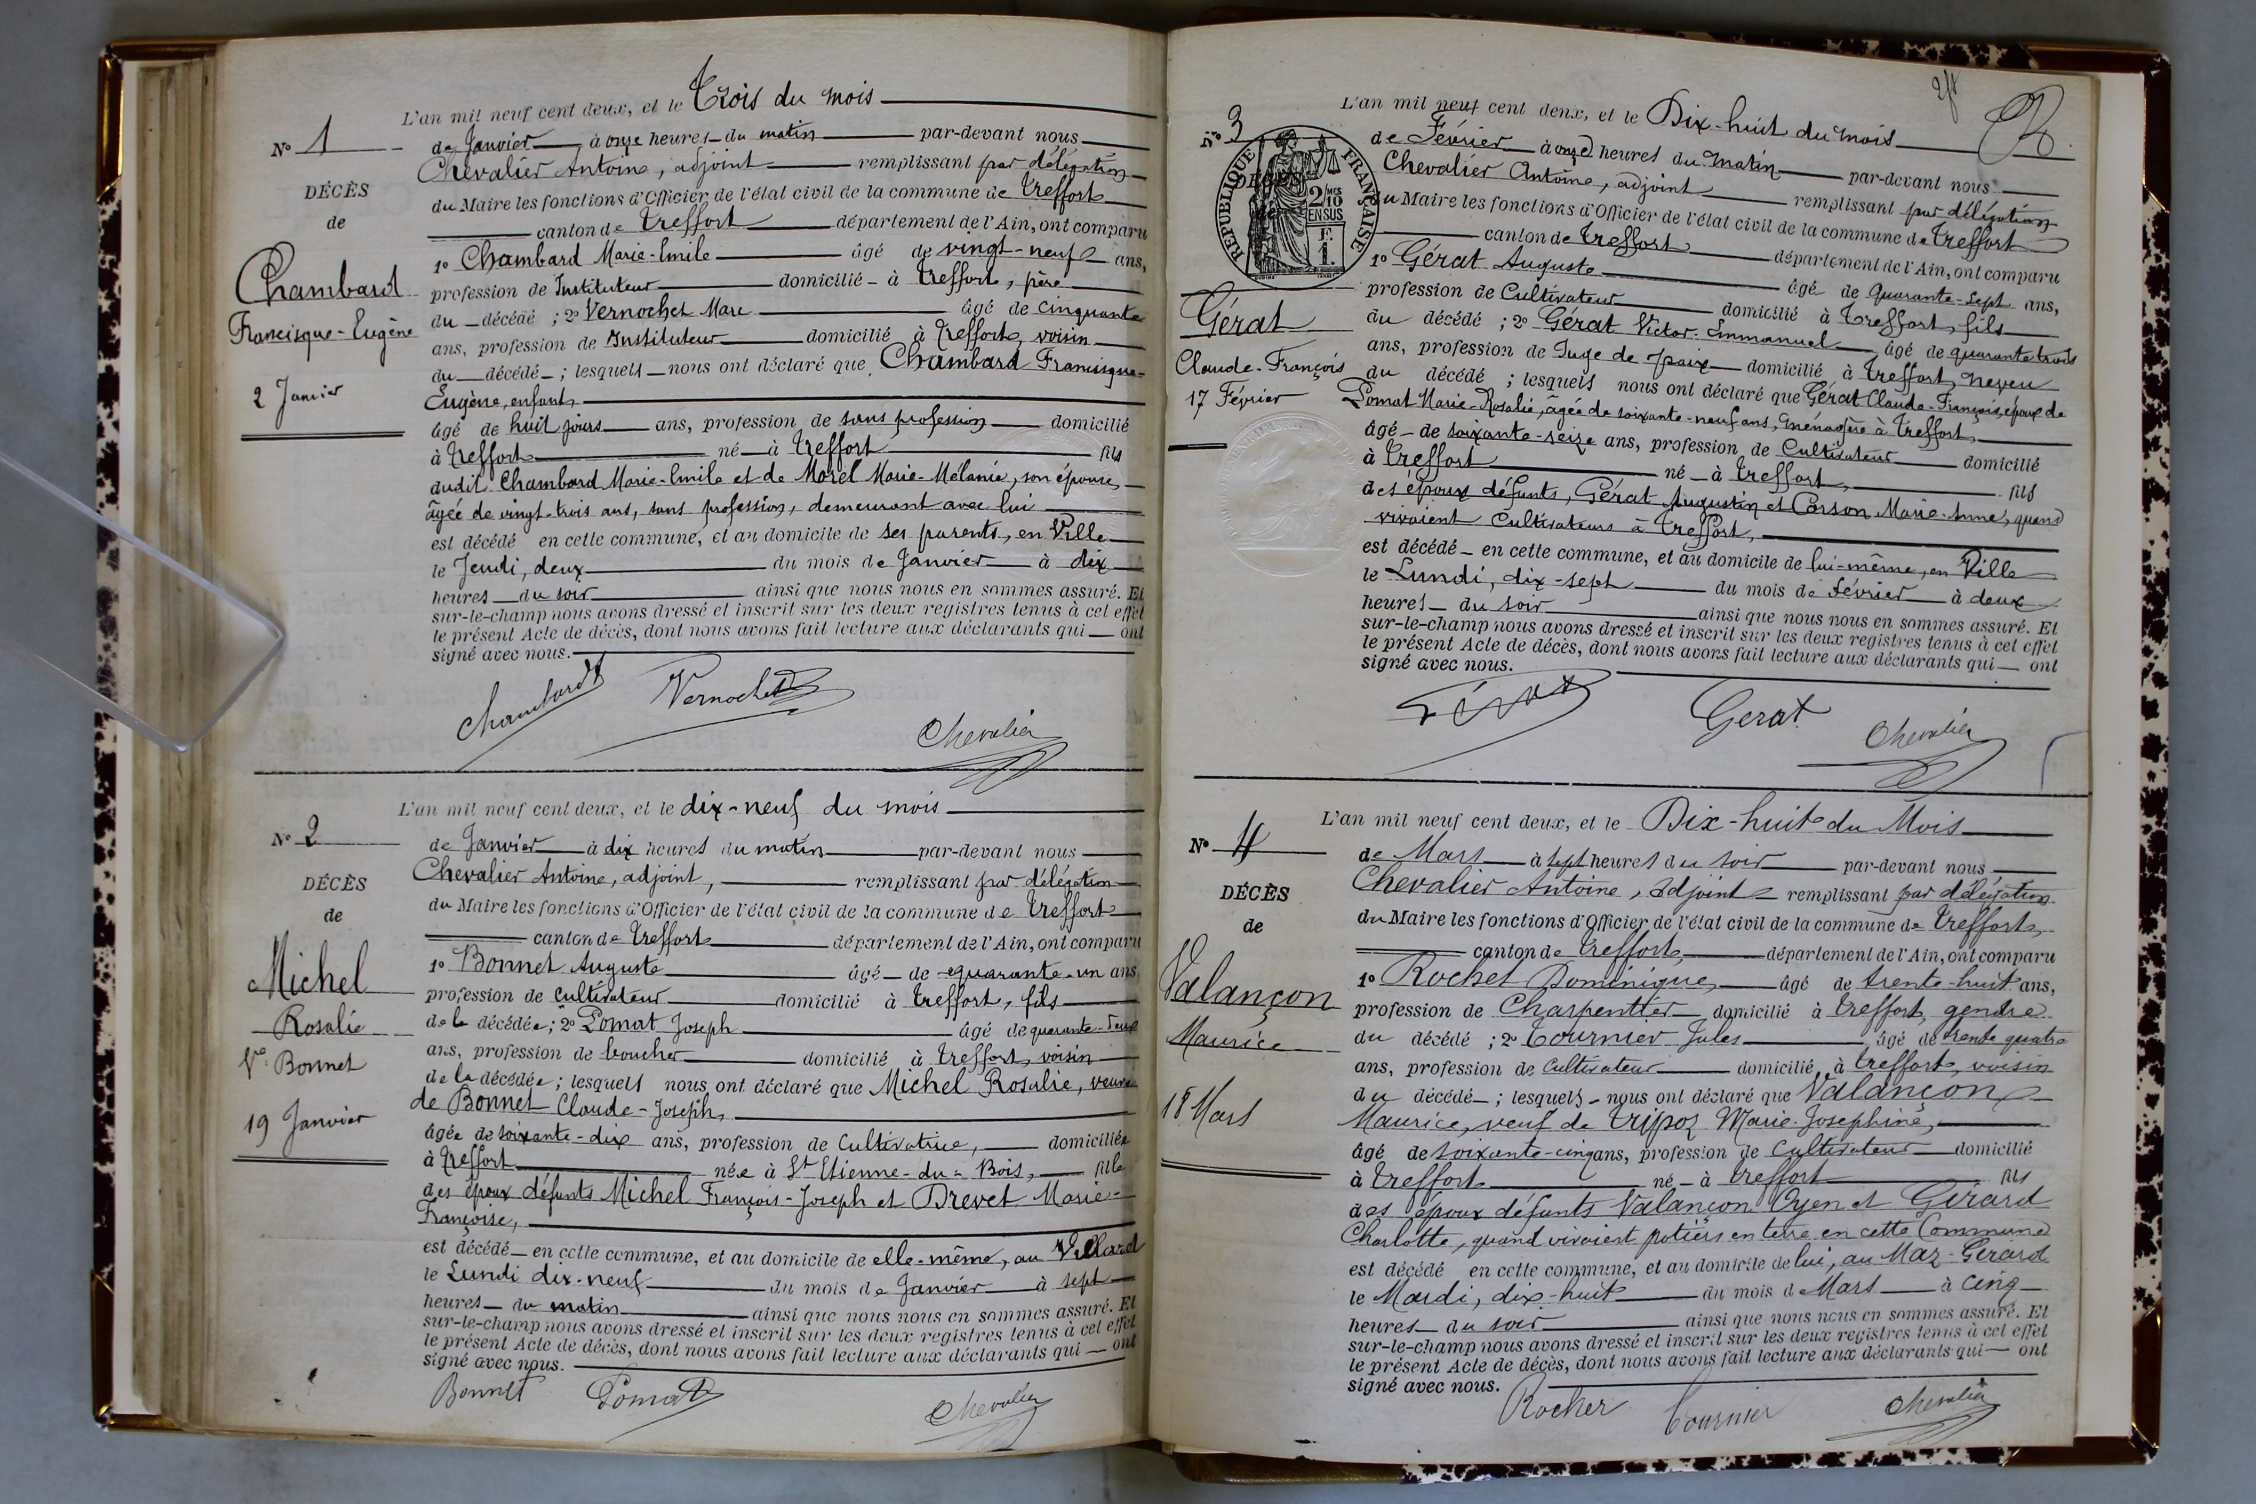 L'an mil neuf cent deux, et le Trois du mois
N° 1
de Janvier à onze heures du matin par-devant nous
Chevalier Antoine, adjoint remplissant par délégation
DÉCÈS
du Maire les fonctions d'Officier de l'état civil de la commune de Treffort
de
canton de Treffort département de l'Ain, ont comparu
1° Chambard Marie-Emile âgé de vingt-neuf ans,
Chambard
profession de Instituteur domicilié à Treffort, père
Francisque-Eugène
du décédé ; 2° Vernochet Marc âgé de cinquante
ans, profession de Instituteur domicilié à Treffort, voisin
du décédé ; lesquels nous ont déclaré que Chambard Francisque-
2 Janvier
Eugène, enfant,
âgé de huit jours ans, profession de sans profession domicilié
à Treffort né à Treffort fils
dudit Chambard Marie-Emile et de Morel Marie-Mélanie, son épouse,
âgée de vingt-trois ans, sans profession, demeurant avec lui
est décédé en cette commune, et au domicile de ses parents, en Ville
le Jeudi, deux du mois de Janvier à dix
heures du soir ainsi que nous nous en sommes assuré. Et
sur-le-champ nous avons dressé et inscrit sur les deux registres tenus à cet effet
le présent Acte de décès, dont nous avons fait lecture aux déclarants qui ont
signé avec nous.
Chambard Vernochet
Chevalier
L'an mil neuf cent deux, et le dix-neuf du mois
N° 2
de Janvier à dix heures du matin par-devant nous
Chevalier Antoine, adjoint, remplissant par délégation
DÉCÈS
du Maire les fonctions d'Officier de l'état civil de la commune de Treffort
de
canton de Treffort département de l'Ain, ont comparu
1° Bonnet Auguste âgé de quarante-un ans,
Michel
profession de Cultivateur domicilié à Treffort, fils
Rosalie
de la décédée ; 2° Pomat Joseph âgé de quarante-deux
Ve Bonnet
ans, profession de boucher domicilié à Treffort, voisin
de la décédée ; lesquels nous ont déclaré que Michel Rosalie, veuve
de Bonnet Claude-Joseph,
19 Janvier
âgée de soixante-dix ans, profession de Cultivatrice, domiciliée
à Treffort née à St Etienne-du-Bois, fille
des époux défunts Michel François-Joseph et Drevet Marie-
Françoise,
est décédé en cette commune, et au domicile de elle-même, au Villard
le Lundi dix-neuf du mois de Janvier à sept
heures du matin ainsi que nous nous en sommes assuré. Et
sur-le-champ nous avons dressé et inscrit sur les deux registres tenus à cet effet
le présent Acte de décès, dont nous avons fait lecture aux déclarants qui ont
signé avec nous.
Bonnet Pomat Chevalier
L'an mil neuf cent deux, et le Dix-huit du mois
N° 3
de Février à onze heures du matin par-devant nous
Chevalier Antoine, adjoint remplissant par délégation
DÉCÈS
de
RÉPUBLIQUE FRANÇAISE
2/10 MES
EN SUS
F.
1.
du Maire les fonctions d'Officier de l'état civil de la commune de Treffort
canton de Treffort département de l'Ain, ont comparu
1° Gérat Auguste âgé de quarante-sept ans,
profession de Cultivateur domicilié à Treffort, fils
Gérat
du décédé ; 2° Gérat Victor-Emmanuel âgé de quarante trois
Claude-François
ans, profession de Juge de paix domicilié à Treffort, neveu
17 Février
du décédé ; lesquels nous ont déclaré que Gérat Claude-François, époux de
Pomat Marie-Rosalie, âgée de soixante-neuf ans, ménagère à Treffort,
âgé de soixante-seize ans, profession de Cultivateur domicilié
à Treffort né à Treffort, fils
des époux défunts, Gérat Augustin et Carson Marie-Anne, quand
vivaient Cultivateurs à Treffort,
est décédé en cette commune, et au domicile de lui-même, en Ville
le Lundi, dix-sept du mois de Février à deux
heures du soir ainsi que nous nous en sommes assuré. Et
sur-le-champ nous avons dressé et inscrit sur les deux registres tenus à cet effet
le présent Acte de décès, dont nous avons fait lecture aux déclarants qui ont
signé avec nous.
Gérat Gerat Chevalier
L'an mil neuf cent deux, et le Dix-huit du Mois
N° 4
de Mars à sept heures du soir par-devant nous
Chevalier Antoine, adjoint remplissant par délégation
DÉCÈS
du Maire les fonctions d'Officier de l'état civil de la commune de Treffort,
de
canton de Treffort département de l'Ain, ont comparu
1° Rochet Dominique, âgé de trente-huit ans,
Valançon
profession de Charpentier domicilié à Treffort, gendre
Maurice
du décédé ; 2° Tournier Jules âgé de trente quatre
ans, profession de Cultivateur domicilié à Treffort, voisin
18 Mars
du décédé ; lesquels nous ont déclaré que Valançon
Maurice, veuf de Tripoz Marie-Josephine,
âgé de soixante-cinq ans, profession de Cultivateur domicilié
à Treffort né à Treffort fils
des époux défunts Valançon Oyen et Gérard
Charlotte, quand vivaient potiers en terre en cette Commune
est décédé en cette commune, et au domicile de lui, au Maz-Gérard
le Mardi, dix-huit du mois de Mars à cinq
heures du soir ainsi que nous nous en sommes assuré. Et
sur-le-champ nous avons dressé et inscrit sur les deux registres tenus à cet effet
le présent Acte de décès, dont nous avons fait lecture aux déclarants qui ont
signé avec nous.
Rocher Tournier Chevalier